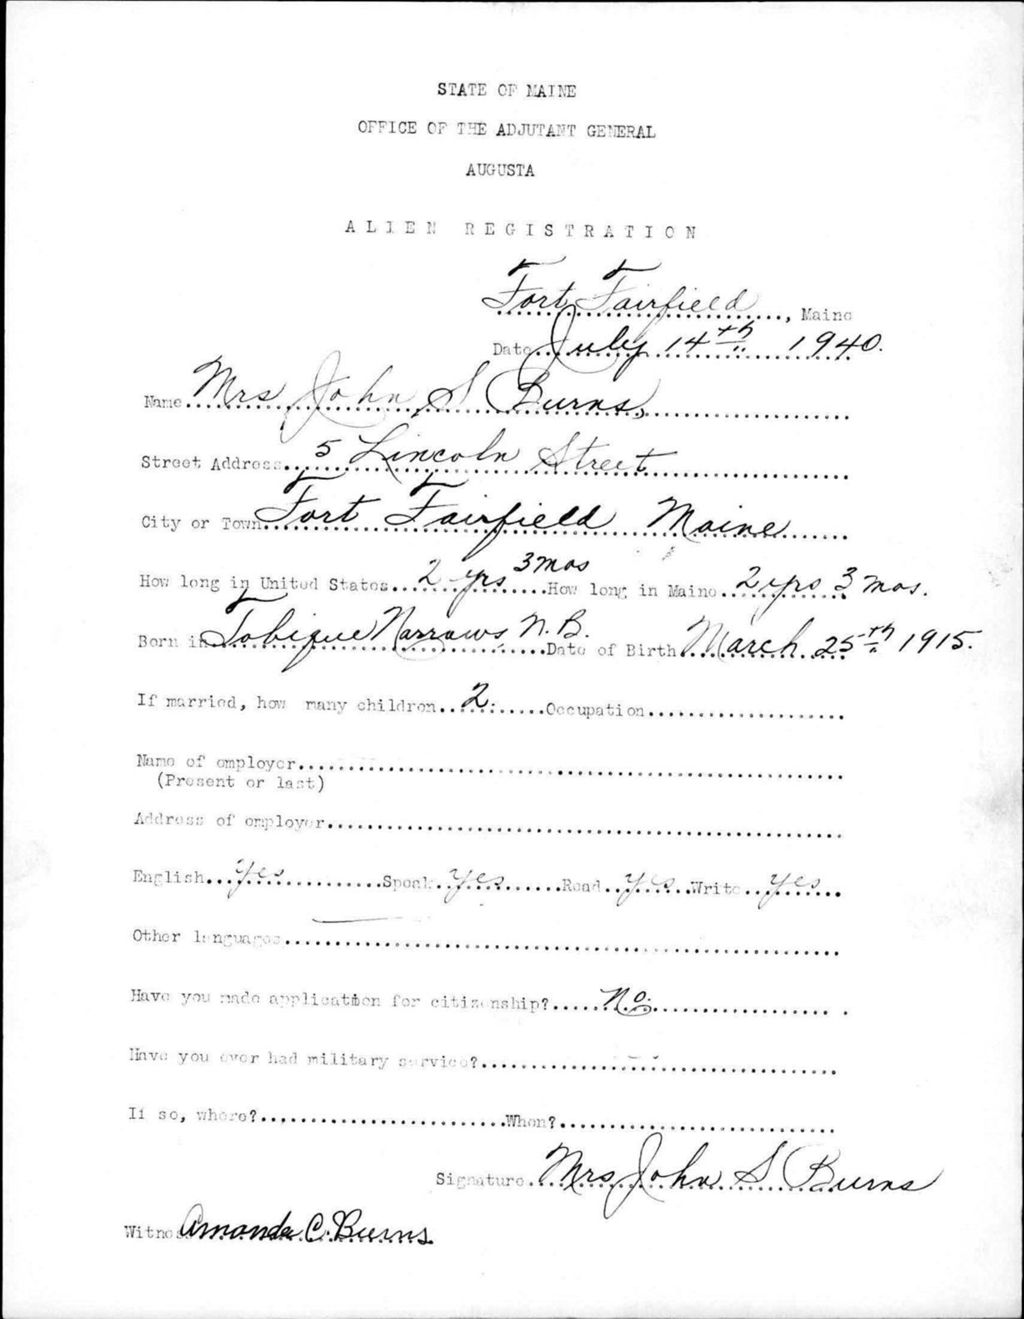 STATE OF MAINE
OFFICE OF THE ADJUTANT GENERAL
AUGUSTA
ALIEN REGISTRATION
Fort Fairfield, Maine
Date July 14th 1940.
Name Mrs John S Burns,
Street Address 5 Lincoln Street
City or Town Fort Fairfield Maine
How long in United States 2 yrs 3 mos How long in Maine 2 yrs 3 mos.
Born in Tobique Narrows N.B. Date of Birth March 25th 1915.
If married, how many children 2. Occupation
Name of employer
(Present or last)
Address of employer
English Yes Speak Yes Read Yes Write Yes
Other languages
Have you made application for citizenship? No.
Have you ever had military service?
If so, where? When?
Signature Mrs John S Burns
Witness Amanda C. Burns